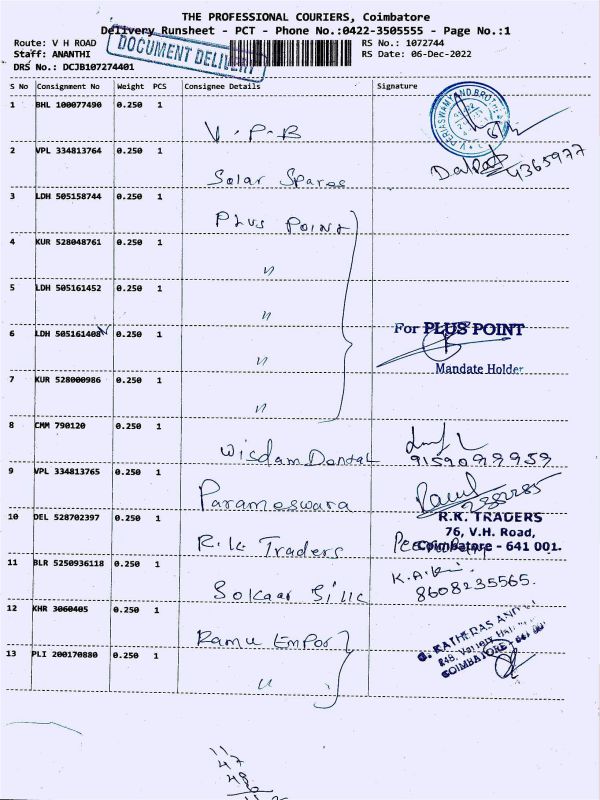 THE PROFESSIONAL COURIERS, Coimbatore
Delivery Runsheet - PCT - Phone No.:0422-3505555 - Page No.:1
Route: V H ROAD
RS No.: 1072744
Staff: ANANTHI
RS Date: 06-Dec-2022
DRS No.: DCJB107274401
DOCUMENT DELIVERY
S No Consignment No Weight PCS Consignee Details Signature
1 BHL 100077490 0.250 1 V.P.B
2 VPL 334813764 0.250 1 Solar Spares
3 LDH 505158744 0.250 1 Plus Point
4 KUR 528048761 0.250 1 "
5 LDH 505161452 0.250 1 "
6 LDH 505161408 0.250 1 "
For PLUS POINT
Mandate Holder
7 KUR 528000986 0.250 1 "
8 CMM 790120 0.250 1 Wisdam Dental
9 VPL 334813765 0.250 1 Parameswara
10 DEL 528702397 0.250 1 R.K Traders
R.K. TRADERS
76, V.H. Road,
Coimbatore - 641 001.
11 BLR 5250936118 0.250 1
8608235565.
12 KHR 3060405 0.250 1 Ramu Empor
13 PLI 200170880 0.250 1 "
COIMBATORE
47